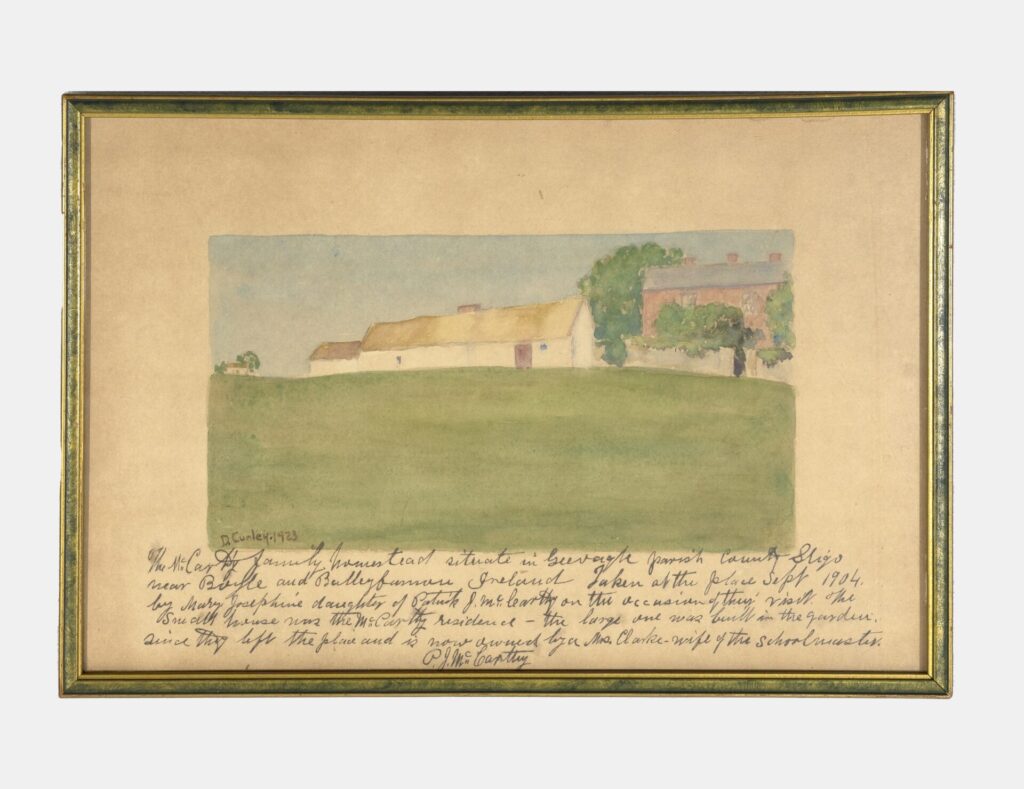 D. Curley. 1923
The McCarthy family homestead situate in Geevagh parish County Sligo
near Boyle and Ballyfarnon Ireland Taken at the place Sept 1904.
by Mary Josephine daughter of Patrick J. McCarthy on the occasion of their visit. The
Small house was the McCarthy residence - the large one was built in the garden.
since they left the place and is now owned by a Mrs. Clarke - wife of the schoolmaster.
P. J. McCarthy